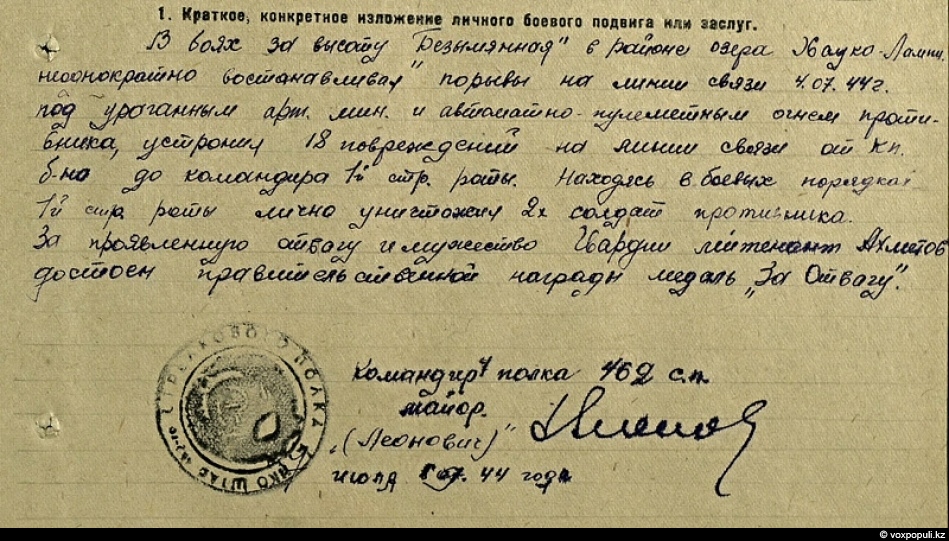 1. Краткое, конкретное изложение личного боевого подвига или заслуг.
В боях за высоту "Безымянная" в районе озера Хаука-Лампи.
неоднократно востанавливал порывы на линии связи 4.07.44г.
под ураганным арт. мин. и автоматно-пулеметным огнем проти-
вника, устронил 18 повреждений на линии связи от кп.
б-на до командира 1й стр. роты. Находясь в боевых порядках
1й стр. роты лично уничтожил 2х солдат противника.
За проявленную отвагу и мужество Гвардии лейтенант Ахметов
достоен правительственной награды медаль "За Отвагу".
Командир полка 462 с.п.
майор.
"(Леонович)"
июля 44 года
СТРЕЛКОВОГО ПОЛКА
© voxpopuli.kz